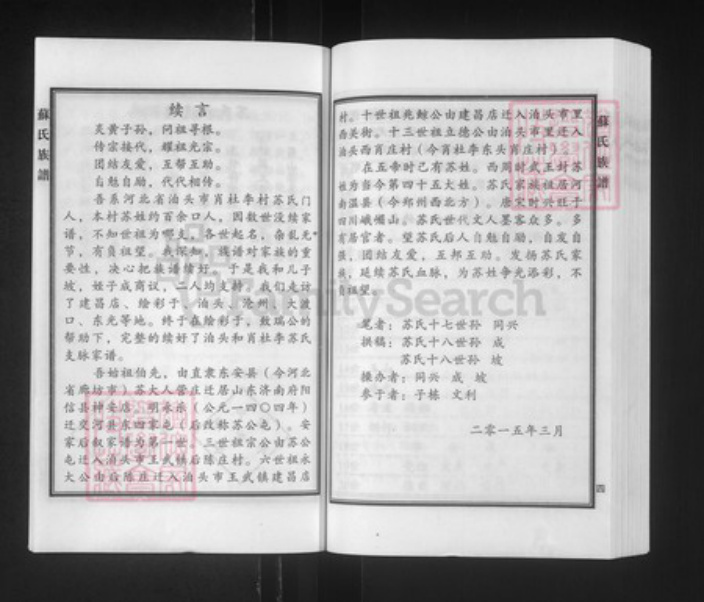 蘇氏族譜
续言
炎黄子孙，问祖寻根。
传宗接代，耀祖光宗。
团结友爱，互帮互助。
自勉自励，代代相传。
吾系河北省泊头市肖杜李村苏氏门
人，本村苏姓约百余口人，因数世没续家
谱，不知世祖为哪支，各世起名，杂乱无
节，有负祖望。我深知，族谱对家族的重
要性，决心把族谱续好。于是我和儿子
坡，姪子成商议，二人均支持。我们走访
了建昌店、绘彩子、泊头、沧州、大渡
口、东光等地。终于在绘彩子，致瑞公的
帮助下，完整的续好了泊头和肖杜李苏氏
支脉家谱。
吾始祖伯先，由直隶东安县（今河北
省廊坊市）苏大人营庄迁居山东济南府阳
信县神安店，明永乐（公元一四〇四年）
迁交河县东四家屯（后改称苏公屯）。安
家后叙家谱为第一世。三世祖宗公由苏公
屯迁入泊头市王武镇后陈庄村。六世祖永
大公由后陈庄迁入泊头市王武镇建昌店
村。十世祖兆鲸公由建昌店迁入泊头市里
西美街。十三世祖立德公由泊头市里迁入
泊头西肖庄村（今肖杜李东头肖庄村）。
在五帝时已有苏姓。西周时武王封苏
姓为当今第四十五大姓。苏氏家族祖居河
南温县（今郑州西北方）。唐宋时兴旺于
四川峨嵋山。苏氏世代文人墨客众多。多
有居官者。望苏氏后人自勉自励，自发自
强，团结友爱，互邦互助。发扬苏氏家
族，延续苏氏血脉，为苏姓争光添彩，不
负祖望。
笔者：苏氏十七世孙 同兴
拱稿：苏氏十八世孙 成
苏氏十八世孙 坡
操办者：同兴 成 坡
参于者：子栋 文利
二零一五年三月
蘇氏族譜
四
FamilySearch